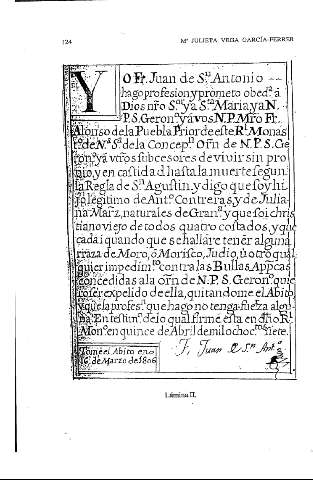 124
Mª JULIETA VEGA GARCÍA-FERRER
YO Fr. Juan de S.n Antonio
hago profesion y prometo obed.a á
Dios nr̃o S.or ya S.ta Maria ya N.
P. S. Geron.o y á vos N. P. Mr̃o Fr.
Alonso de la Puebla Prior de este R.l Monas
t.o de N.a S.a de la Concep.n Orñ de N. P. S. Ge
ron.o y á vr̃os subcesores de vivir sin pro
pio, y en castidad hasta la muerte segun
la Regla de S.n Agustin, y digo que soy hi
jo legitimo de Ant.o Contreras, y de Julia
na Marz, naturales de Gran.a y que soi chris
tiano viejo de todos quatro costados, y que
cada i quando que se hallare tener alguna
rraza de Moro, ó Morisco, Judio, ú otro qual
quier impedim.to contra las Bullas App.cas
concedidas a la orñ de N. P. S. Geron.o quie
ro ser expelido de ella, quitandome el Abito,
y que la profes.n que hago no tenga fueza algu
na. En testim.o de lo qual firmé esta en dr̃o R.l
Mon.o en quince de Abril de mil ochoc.tos siete.
Tomé el Abito en
16 de Marzo de 1806
F. Juan de S.n Ant.o
Lámina II.